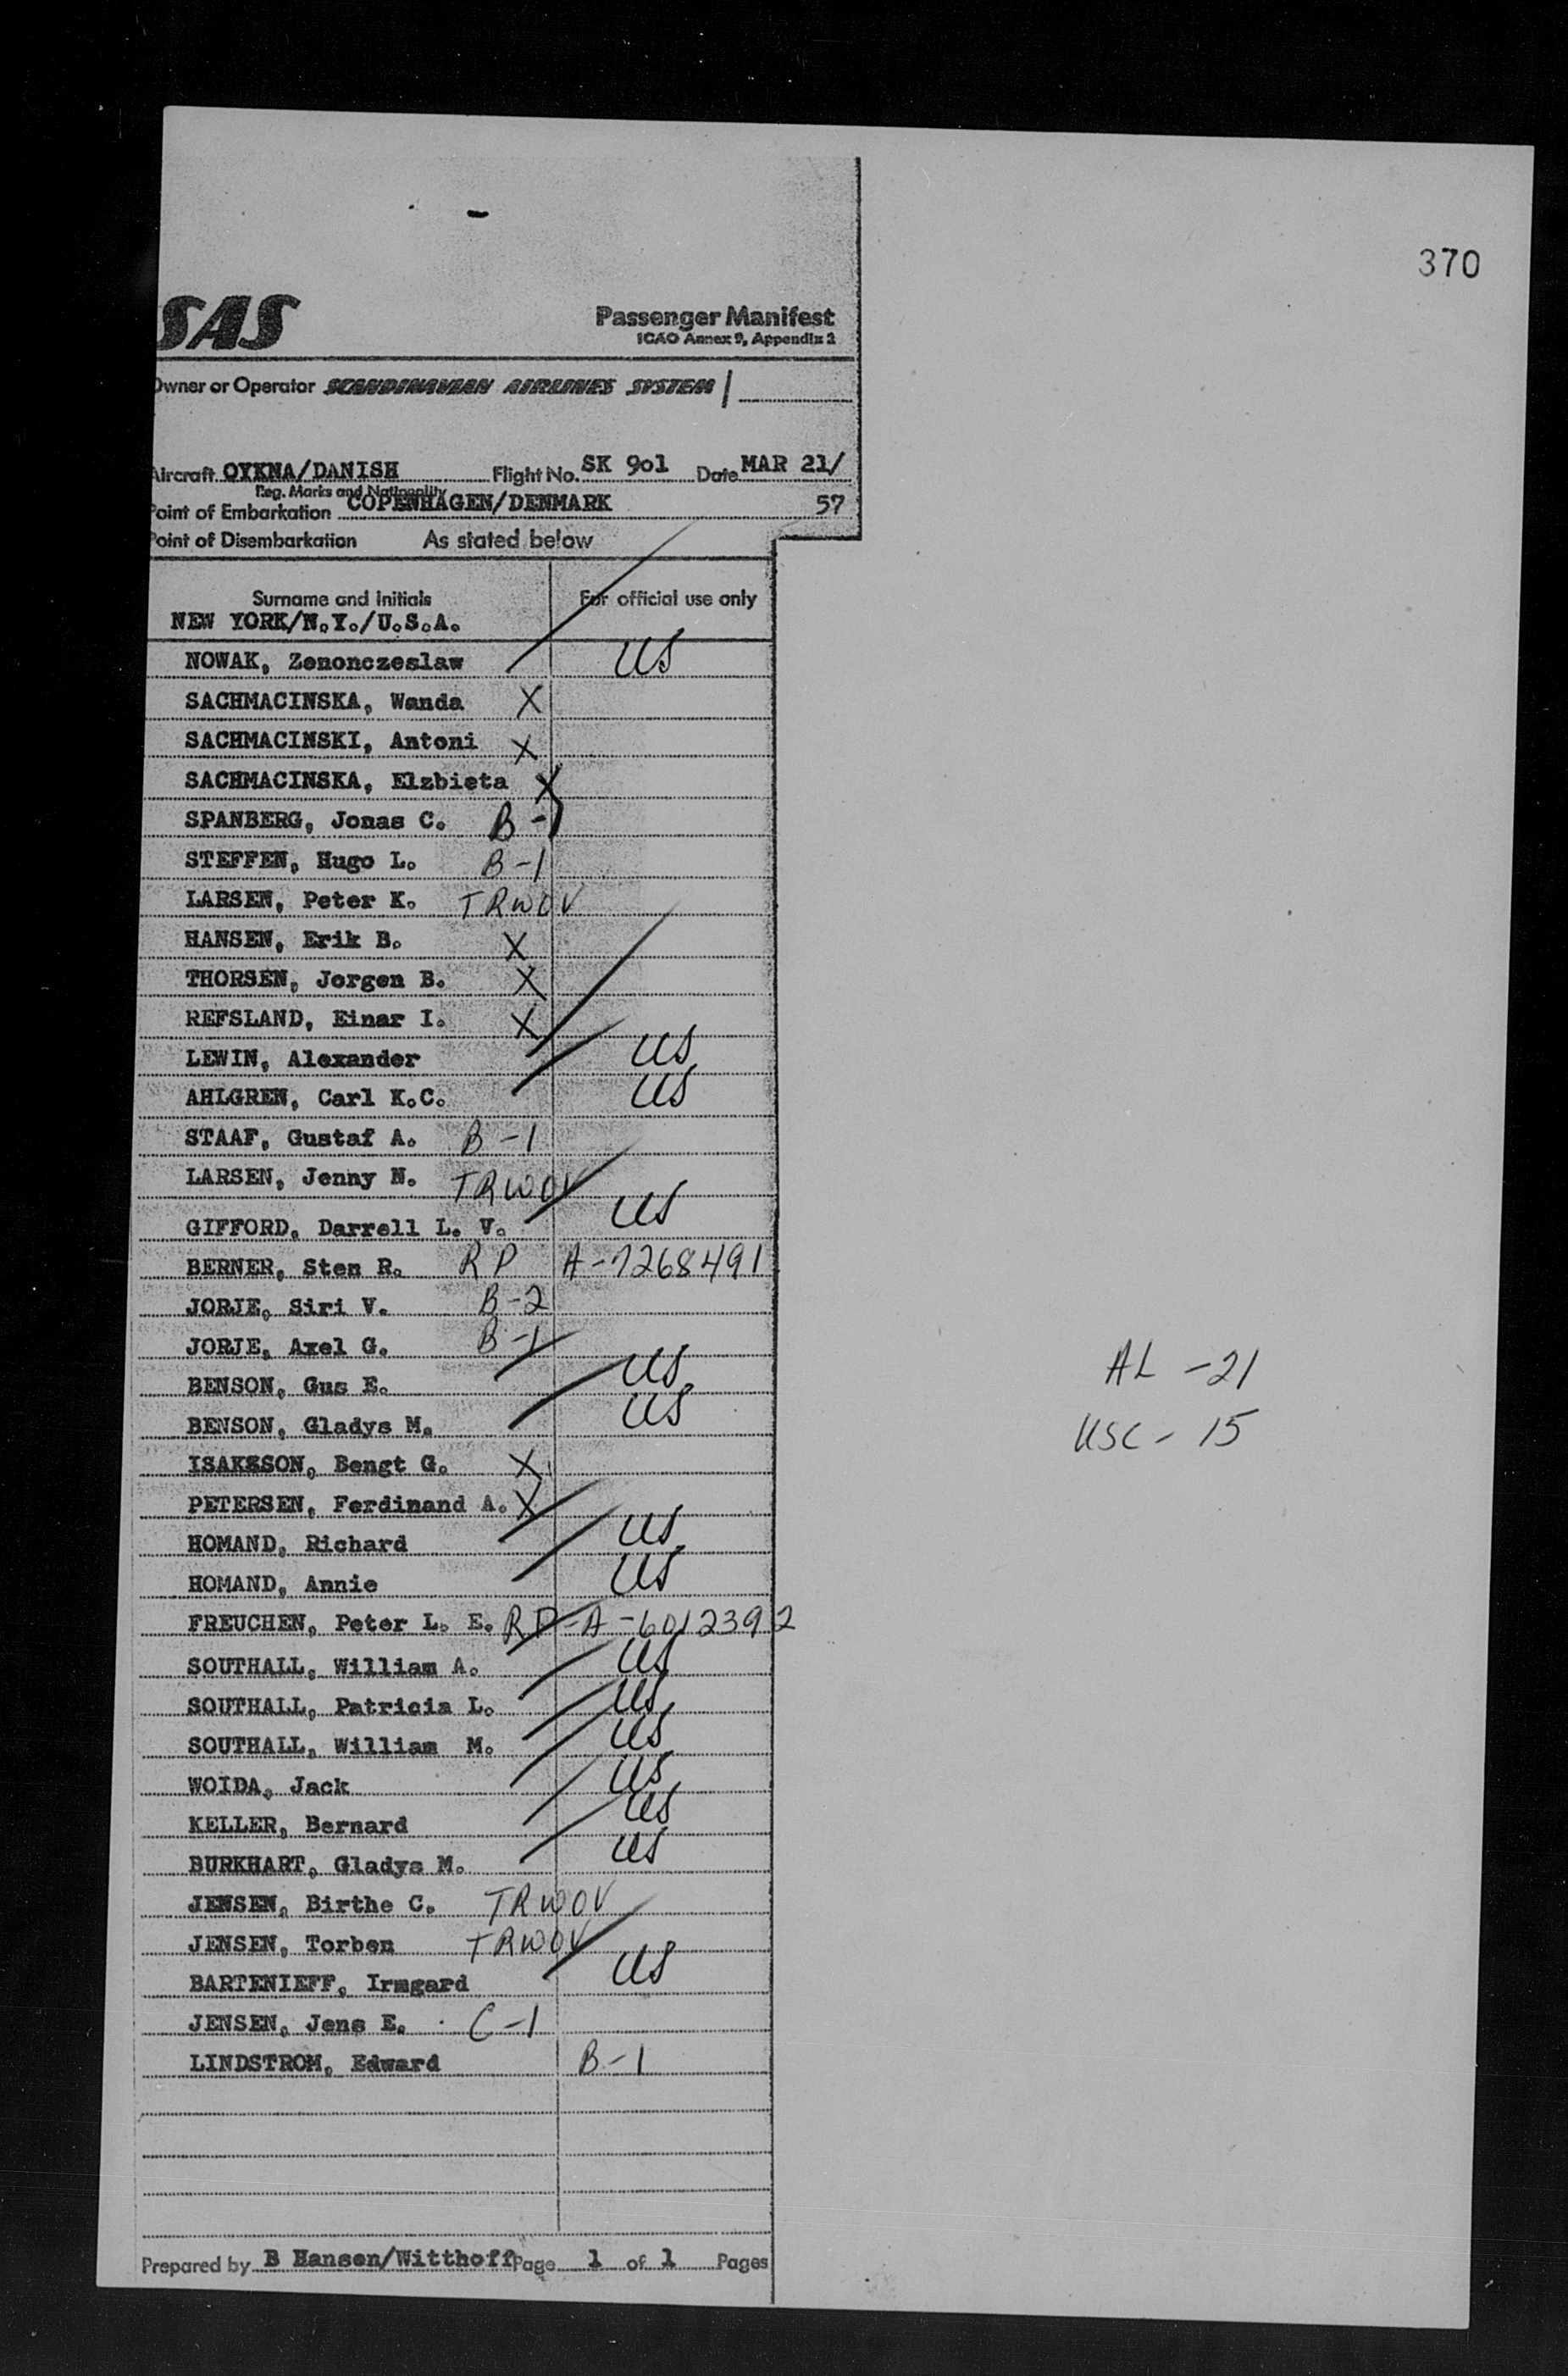 370
SAS
Passenger Manifest
ICAO Annex 9, Appendix 2
Owner or Operator SCANDINAVIAN AIRLINES SYSTEM
Aircraft OYKNA/DANISH Flight No. SK 901 Date MAR 21/
Reg. Marks and Nationality
Point of Embarkation COPENHAGEN/DENMARK 57
Point of Disembarkation As stated below
Surname and Initials For official use only
NEW YORK/N.Y./U.S.A.
NOWAK, Zenonczeslaw US
SACHMACINSKA, Wanda X
SACHMACINSKI, Antoni X
SACHMACINSKA, Elzbieta X
SPANBERG, Jonas C. B-1
STEFFEN, Hugo L. B-1
LARSEN, Peter K. TRWOV
HANSEN, Erik B. X
THORSEN, Jorgen B. X
REFSLAND, Einar I. X
LEWIN, Alexander US
AHLGREN, Carl K.C. US
STAAF, Gustaf A. B-1
LARSEN, Jenny N. TRWOV
GIFFORD, Darrell L. V. US
BERNER, Sten R. RP A-7268491
JORJE, Siri V. B-2
JORJE, Axel G. B-1
BENSON, Gus E. US
BENSON, Gladys M. US
ISAKSSON, Bengt G. X
PETERSEN, Ferdinand A. X
HOMAND, Richard US
HOMAND, Annie US
FREUCHEN, Peter L. E. RP-A-6012392
SOUTHALL, William A. US
SOUTHALL, Patricia L. US
SOUTHALL, William M. US
WOIDA, Jack US
KELLER, Bernard US
BURKHART, Gladys M. US
JENSEN, Birthe C. TRWOV
JENSEN, Torben TRWOV
BARTENIEFF, Irmgard US
JENSEN, Jens E. C-1
LINDSTROM, Edward B-1
AL -21
USC - 15
Prepared by B Hansen/Witthoff Page 1 of 1 Pages